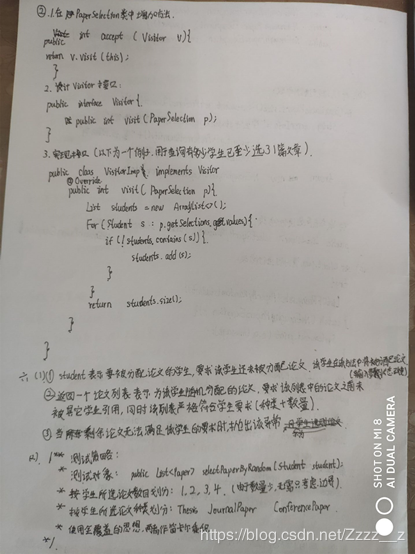 ② 1.在 PaperSelection类中增加方法.
public int accept ( Visitor v){
return v.visit (this);
}
2. 设计 Visitor 接口:
public interface Visitor {
public int visit ( PaperSelection p);
}
3. 实现接口 (以下为一个例子, 用于查询有多少学生已至少选了1篇文章).
public class VisitorImpl implements Visitor
@Override
public int visit ( PaperSelection p){
List students = new ArrayList<>();
For (Student s : p.getSelections.values){
if (!students.contains(s)){
students.add(s);
}
}
return students.size();
}
}
六、(1)① student 表示要被分配论文的学生, 要求该学生还未被分配论文
② 返回一个论文列表 表示为该学生随机分配的论文, 要求该列表中的论文之前未
被其它学生引用, 同时该列表严格符合学生要求 (种类+数量).
③ 当剩余论文无法满足该学生的要求时, 抛出该异常
(2) /** 测试策略:
* 测试对象: public List<Paper> selectPaperByRandom (Student student);
* 按学生所选论文数目划分: 1, 2, 3, 4. (由于数量少, 无需只考虑边界).
* 按学生所选论文种类划分: Thesis JournalPaper ConferencePaper.
* 使用全覆盖的思想,
*/
SHOT ON MI 8
AI DUAL CAMERA
https://blog.csdn.net/Zzzz__z